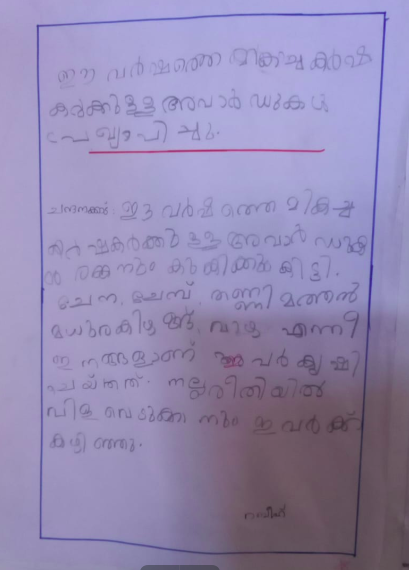 ഈ വർഷത്തെ മികച്ച കർഷ
കർക്കുള്ള അവാർഡുകൾ
പ്രഖ്യാപിച്ചു.
ഈ വർഷത്തെ മികച്ച
കർഷകർക്കുള്ള അവാർഡുക
ൾ രങ്കനും കുങ്കിക്കും കിട്ടി.
ചേന, ചേമ്പ്, തണ്ണിമത്തൻ
മധുരകിഴങ്ങ്, വാഴ എന്നീ
ഇനങ്ങളാണ് ഇവർ കൃഷി
ചെയ്തത്. നല്ലരീതിയിൽ
വിളവെടുക്കാനും ഇവർക്ക്
കഴിഞ്ഞു.